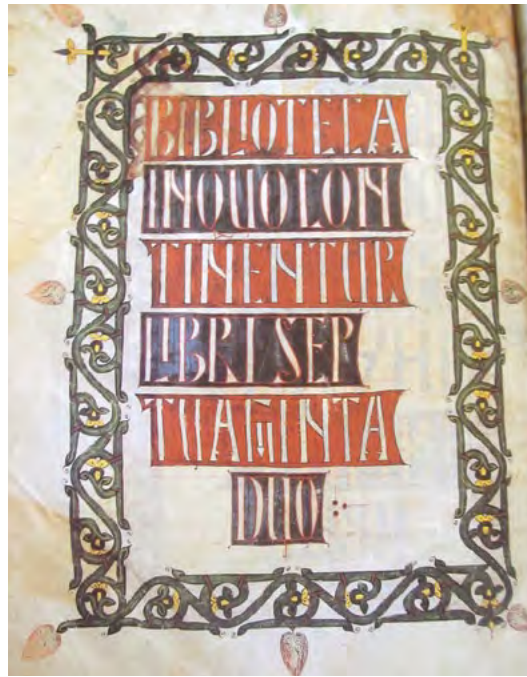 BIBLIOTECA
INQUOCON
TINENTUR
LIBRI SEP
TUAGINTA
DUO